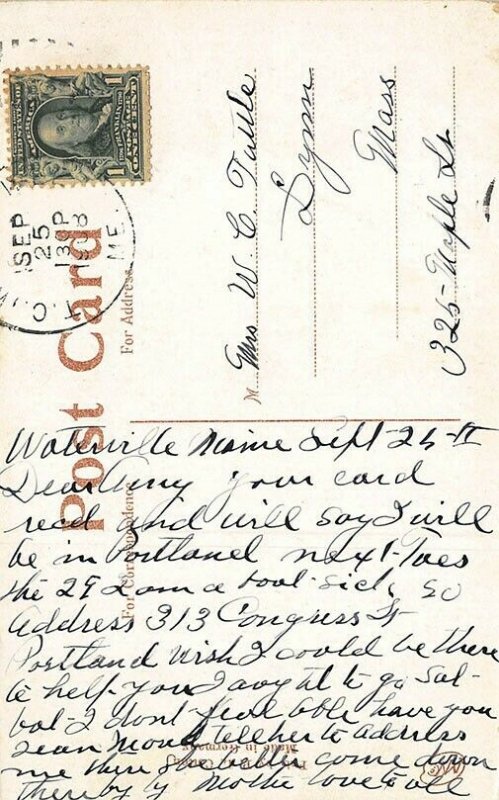 ONE CENT
SEP
25
1908
ME.
Post Card
For Address
For Correspondence
Mrs W. C. Tuttle
Lynn
Mass
325 Maple St.
Waterville Maine Sept-25-
Dear Amy your card
recd and will say I will
be in Portland next Tues
the 29 I am a bout sick, so
Address 313 Congress St
Portland Wish I could be there
to help you I aught to go Sal-
bat I dont feel able have you
sean tell her to address
me there she better come down
there by love to all
Made in Germany